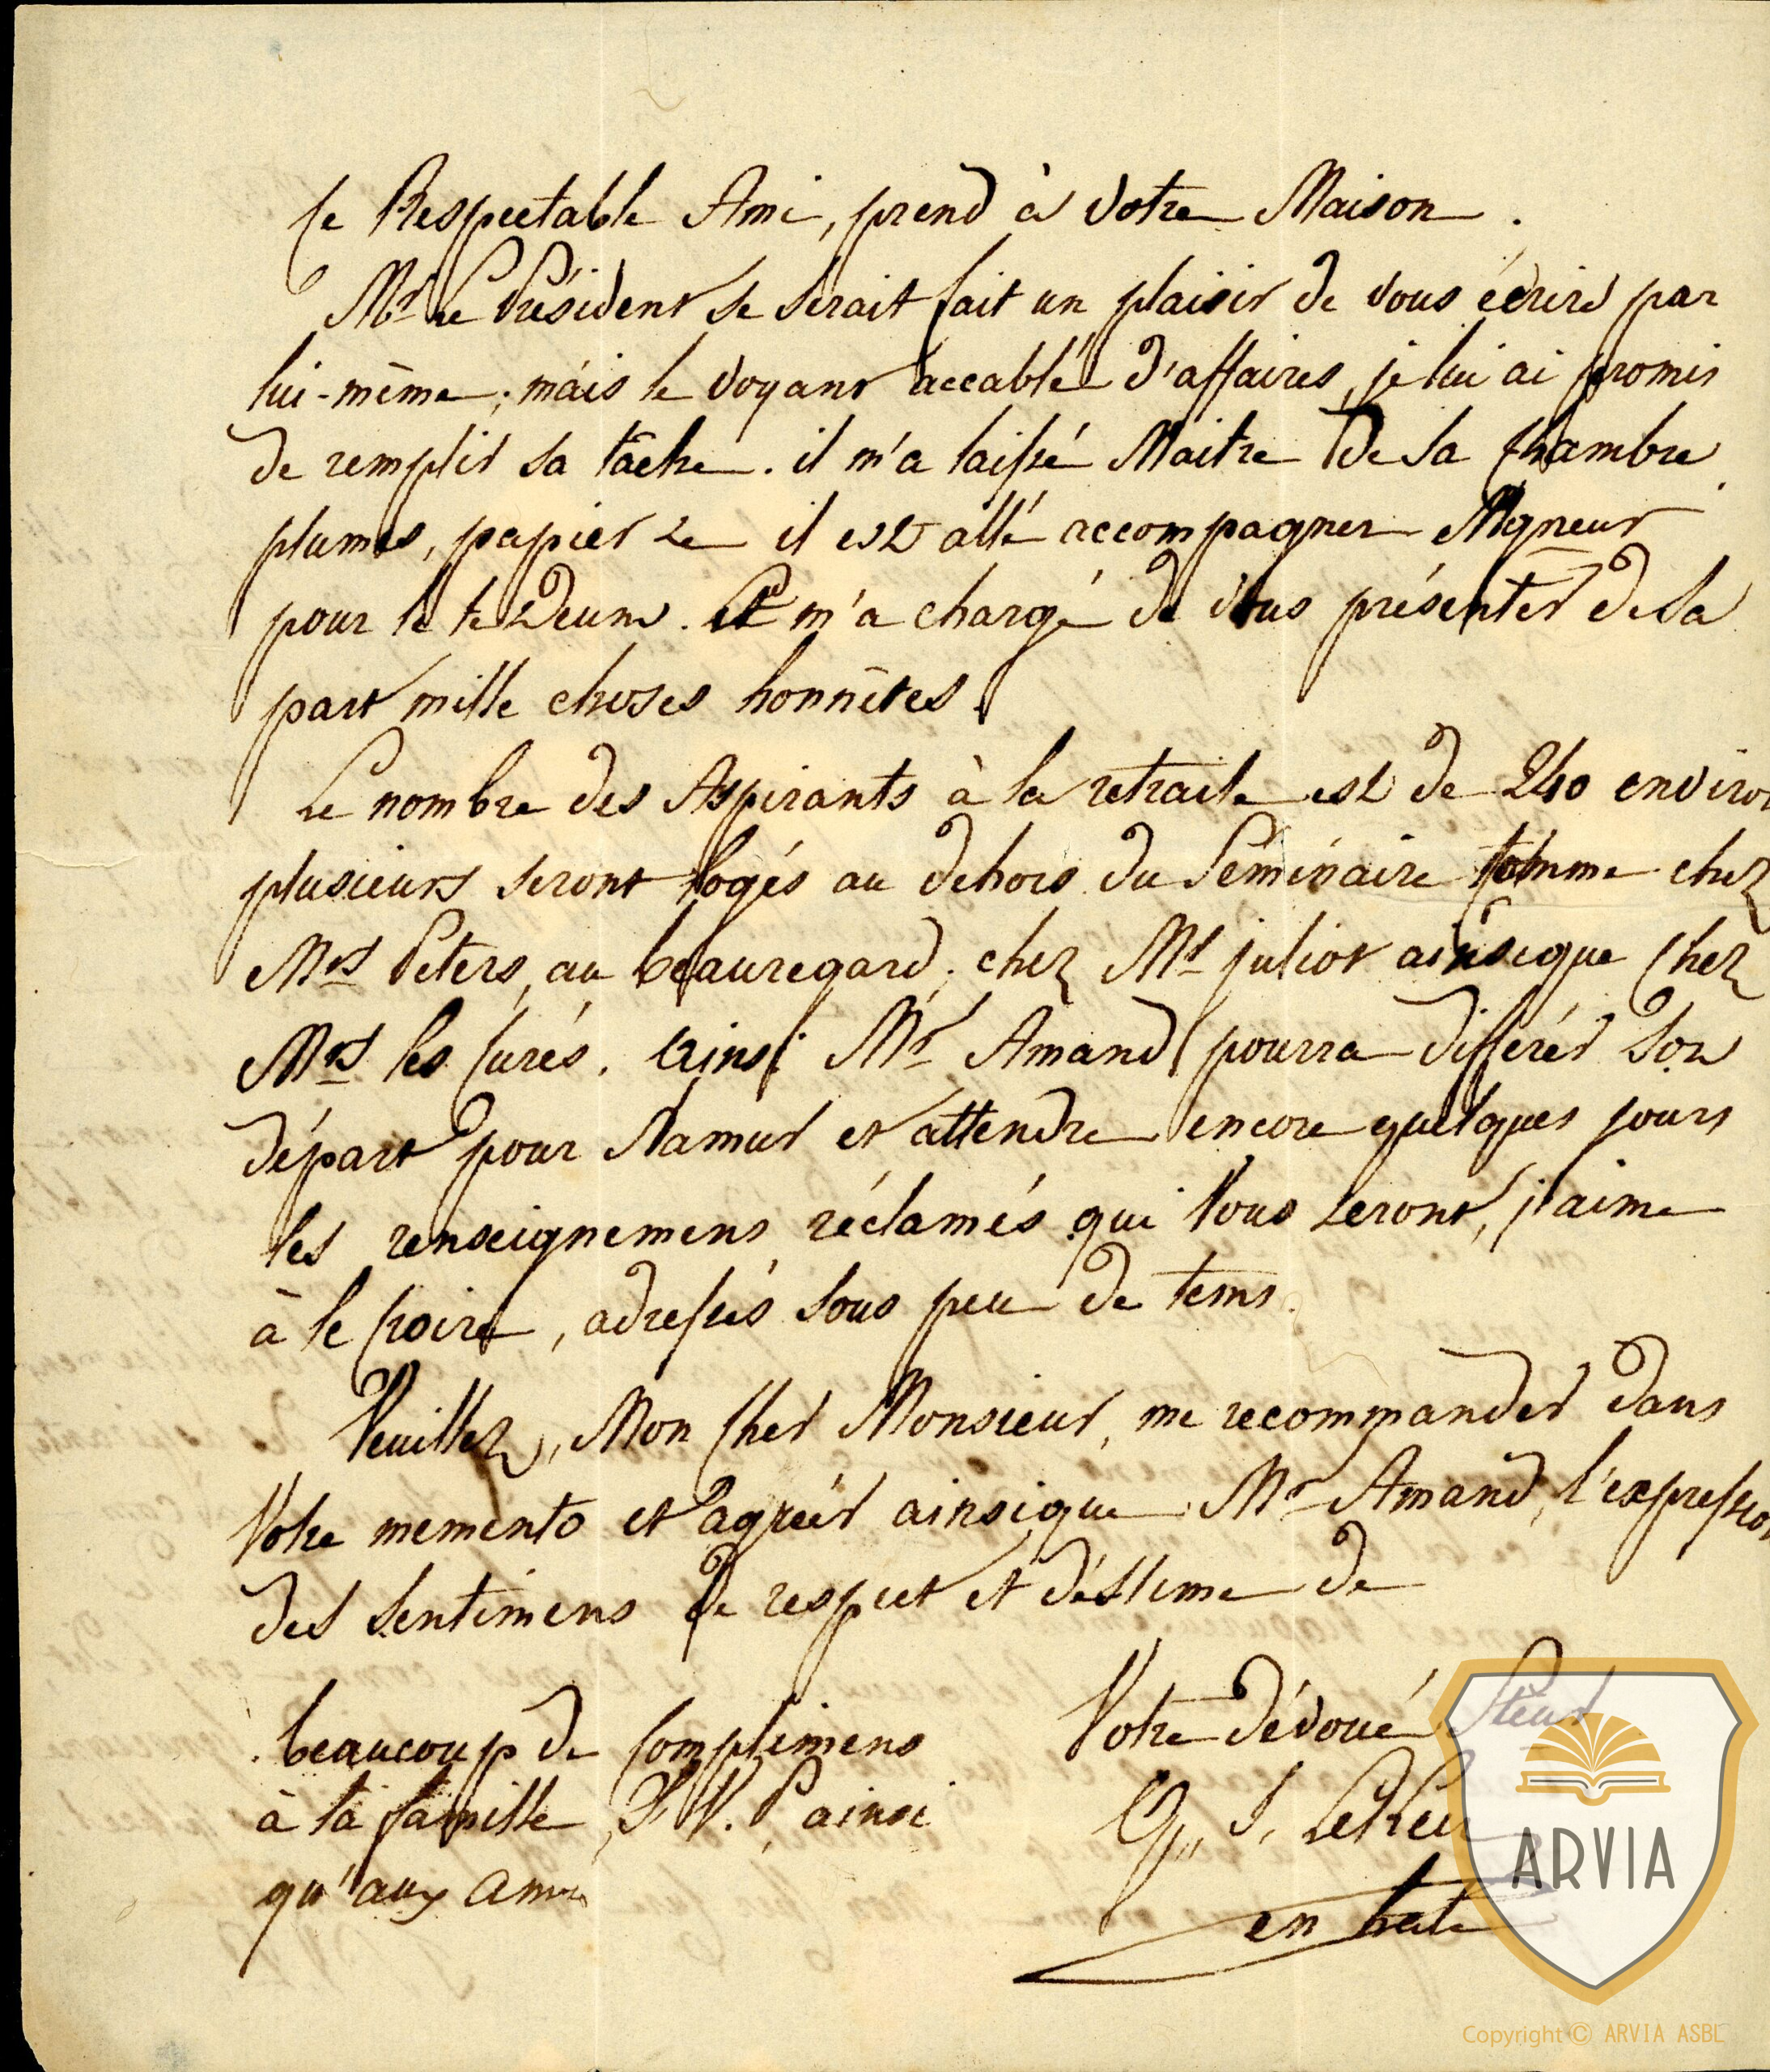 ce Respectable Ami, prend à votre Maison.
Mr le Président se serait fait un plaisir de vous écrire par
lui-même; mais le voyant accablé d'affaires, je lui ai promis
de remplir sa tâche. il m'a laissé Maitre de sa Chambre
plumes, papier &c il est allé accompagner Mgneur
pour le te Deum. et m'a chargé de vous présenter de sa
part mille choses honnêtes.
Le nombre des Aspirants à la retraite est de 240 environ
plusieurs seront logés au dehors du Séminaire comme chez
Mrs Peters, au beauregard; chez Mr juliot ainsique chez
Mrs les Curés. ainsi Mr Amand pourra différer son
départ pour Namur et attendre encore quelques jours
les renseignemens réclamés qui vous seront, j'aime
à le croire, adressés sous peu de tems.
Veuillez, Mon Cher Monsieur, me recommander dans
Votre memento et agréer ainsique Mr Amand, l'expression
des sentimens de respect et d'éstime de
Votre dévoué
beaucoup de Complimens
à la famille, S. V. P. ainsi
qu'aux amis
en hate
ARVIA
Copyright © ARVIA ASBL